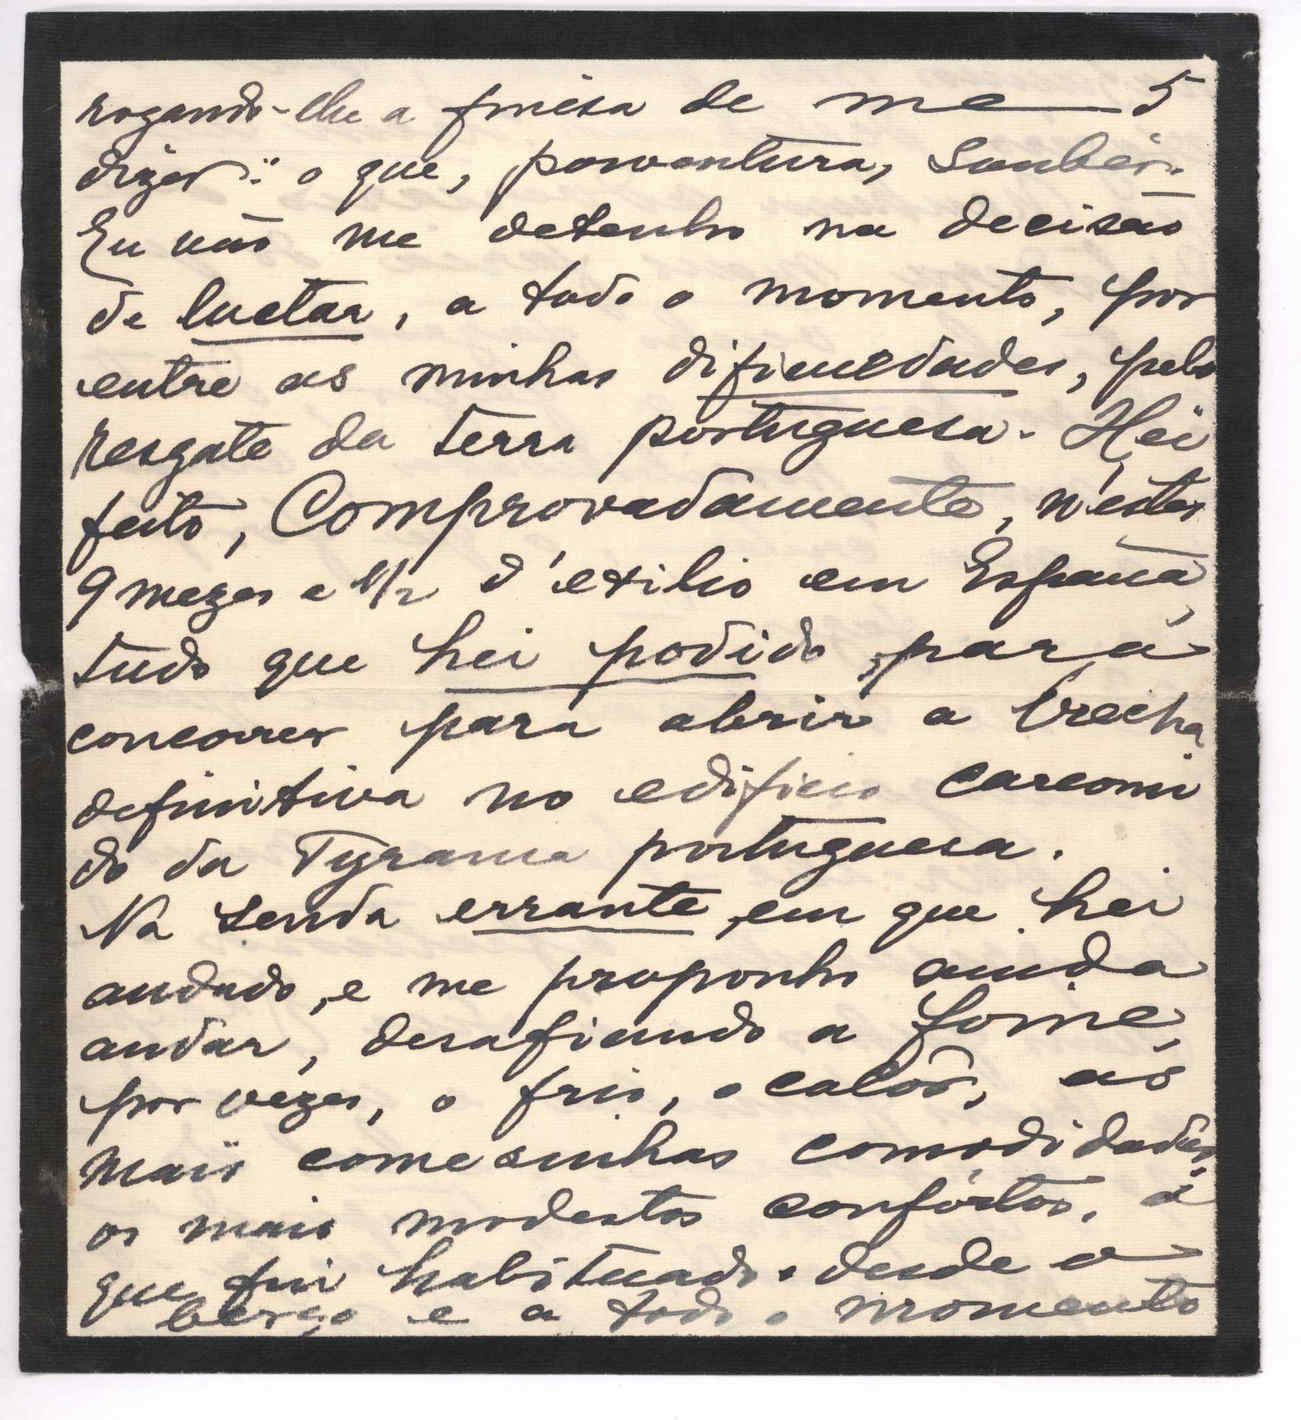 rogando-lhe a finêsa de me — 5
dizer: o que, porventura, Soubér.
Eu não me detenho na decisão
de luctar, a todo o momento, por
entre as minhas dificuldades, pelo
resgate da terra portuguesa. Hei
feito, Comprovadamente, n'estes
9 mezes e 1/2 d'exilio em España,
tudo que hei podido, para
concorrer para abrir a brecha
definitiva no edificio carcomi
do da Tyrania portuguesa.
Na senda errante, em que hei
andado, e me proponho ainda
andar, desafiando a fome,
por vezes, o frio, o calôr, as
mais comesinhas comodidades,
os mais modestos confórtos, a
que fui habituado desde o
berço e a todo o momento